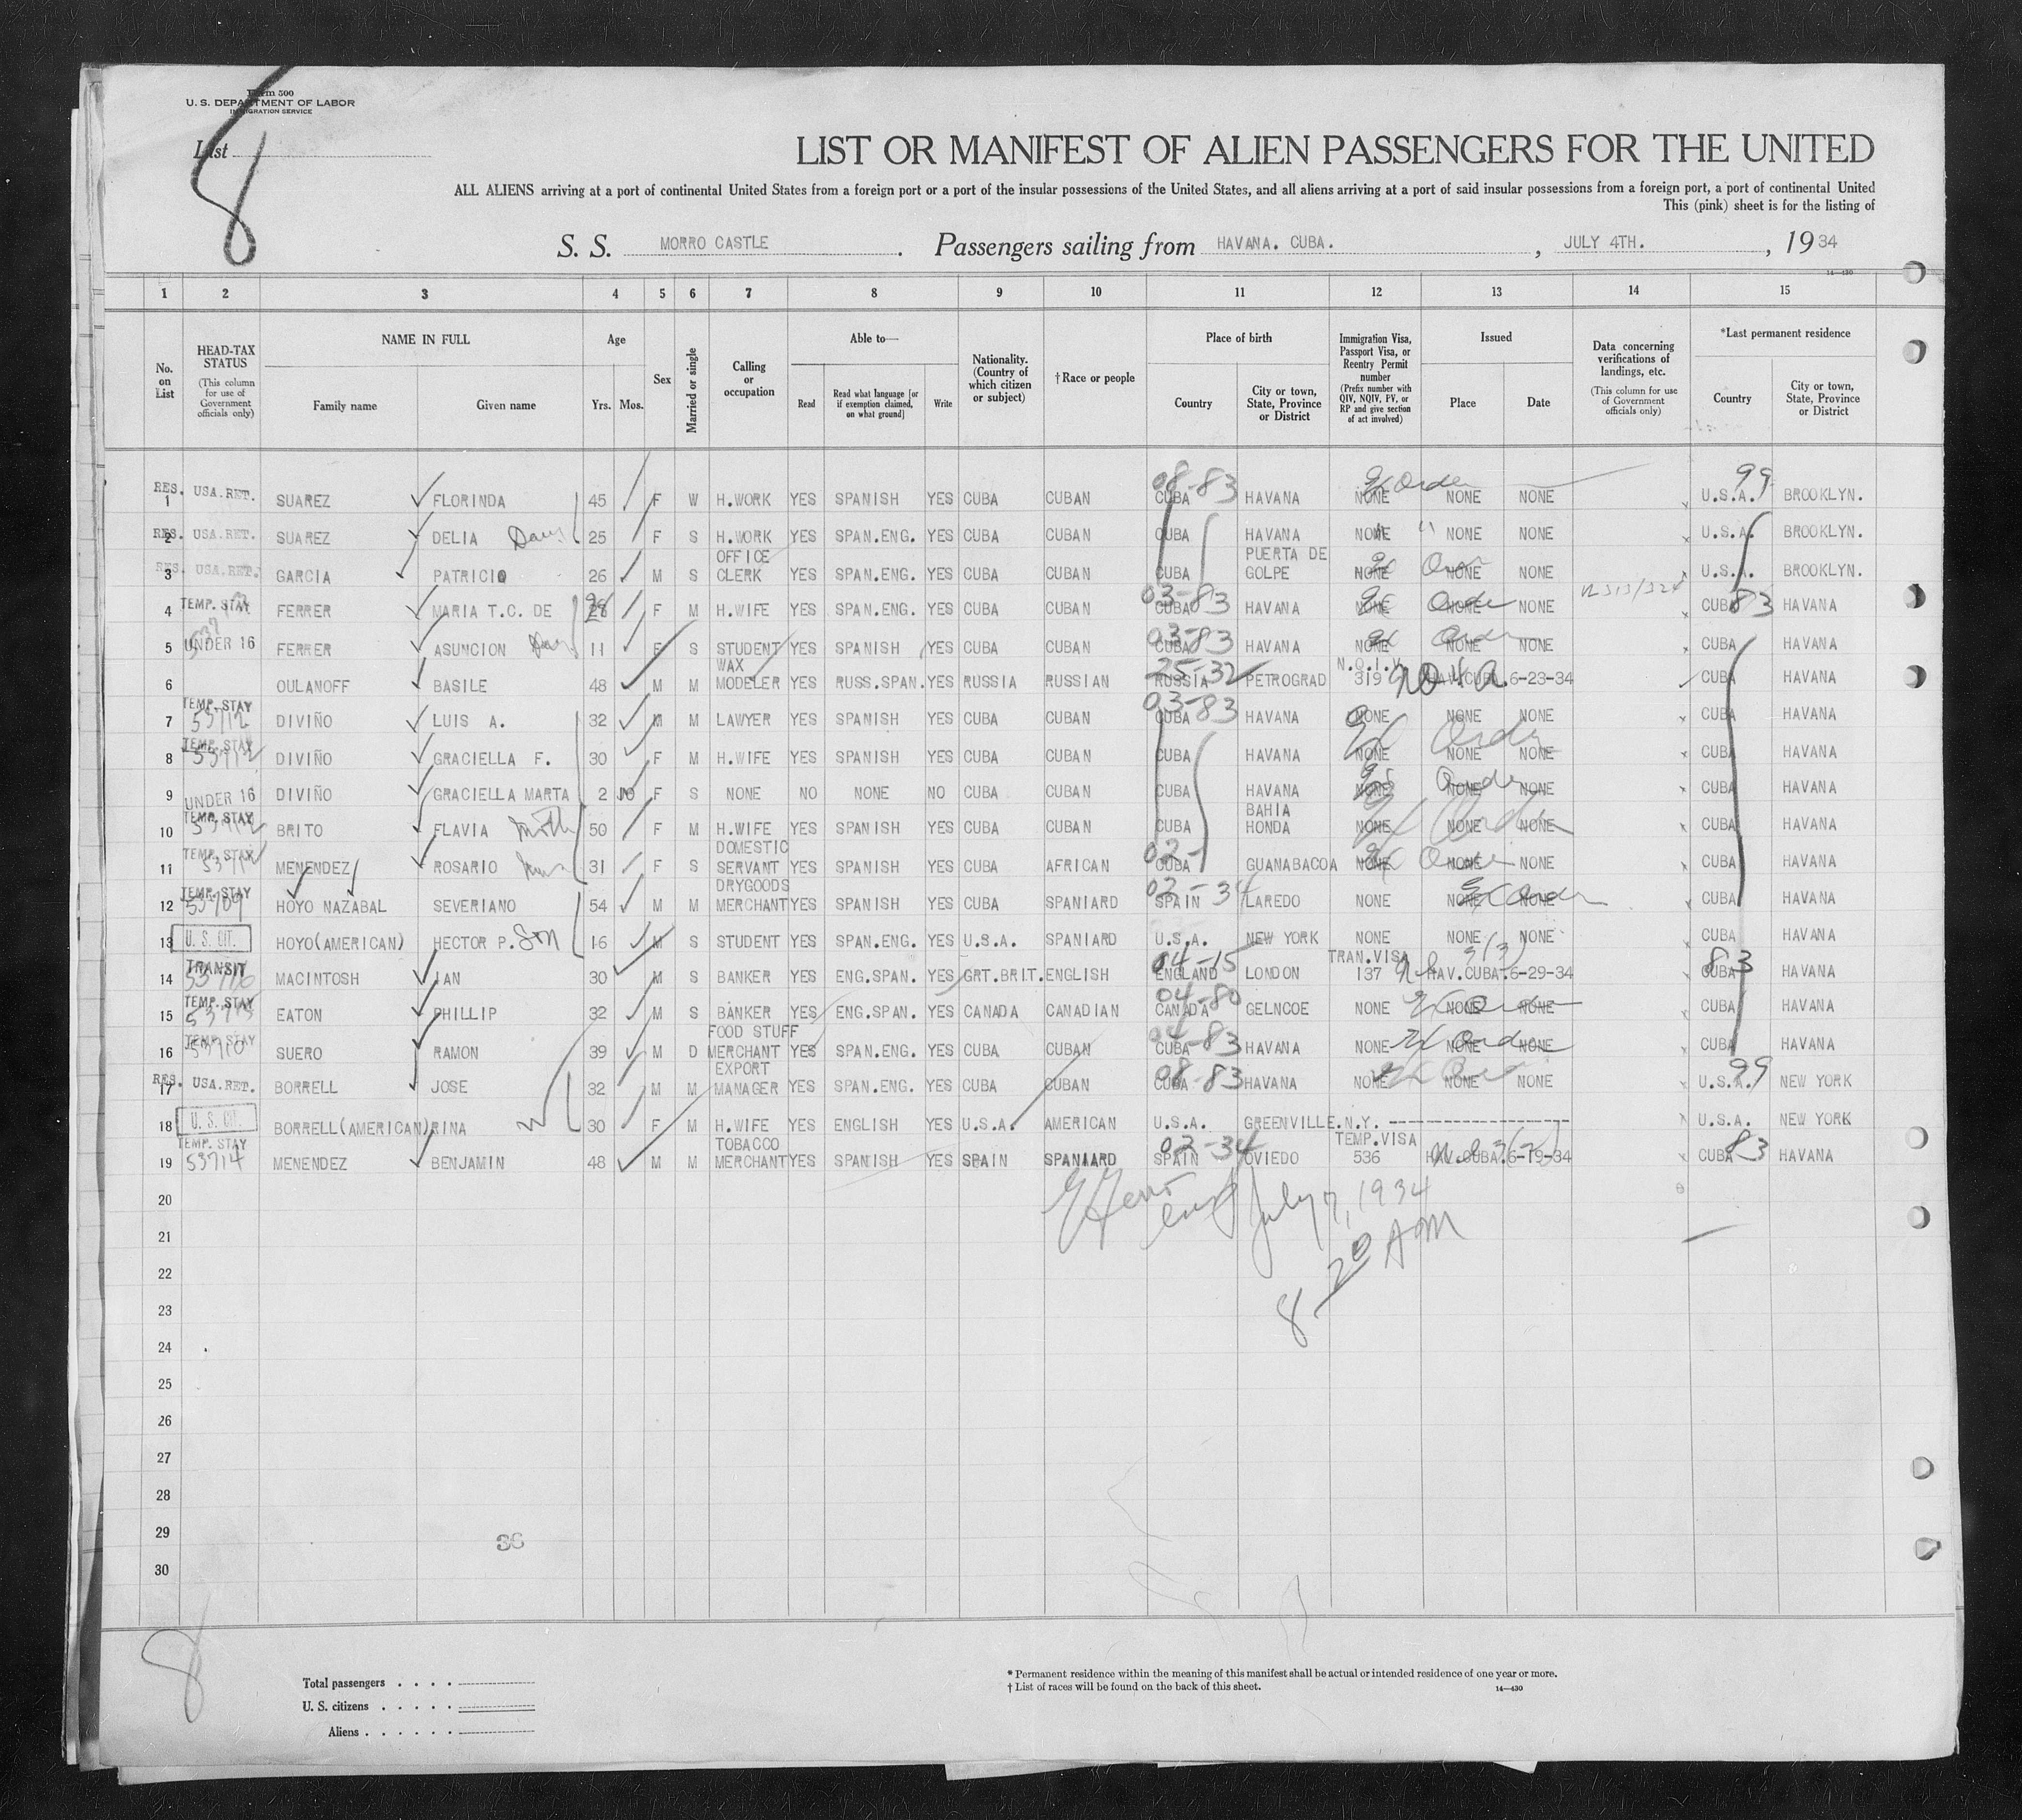 Form 500
U. S. DEPARTMENT OF LABOR
IMMIGRATION SERVICE
List
8
LIST OR MANIFEST OF ALIEN PASSENGERS FOR THE UNITED
ALL ALIENS arriving at a port of continental United States from a foreign port or a port of the insular possessions of the United States, and all aliens arriving at a port of said insular possessions from a foreign port, a port of continental United
This (pink) sheet is for the listing of
S. S. MORRO CASTLE . Passengers sailing from HAVANA. CUBA. , JULY 4TH. , 1934
14—430
1 2 3 4 5 6 7 8 9 10 11 12 13 14 15
No. on List
HEAD-TAX STATUS (This column for use of Government officials only)
NAME IN FULL Family name Given name
Age Yrs. Mos.
Sex
Married or single
Calling or occupation
Able to— Read Read what language [or if exemption claimed, on what ground] Write
Nationality. (Country of which citizen or subject)
†Race or people
Place of birth Country City or town, State, Province or District
Immigration Visa, Passport Visa, or Reentry Permit number (Prefix number with QIV, NQIV, PV, or RP and give section of act involved)
Issued Place Date
Data concerning verifications of landings, etc. (This column for use of Government officials only)
*Last permanent residence Country City or town, State, Province or District
1 RES. USA.RET. SUAREZ FLORINDA 45 F W H.WORK YES SPANISH YES CUBA CUBAN 08-83 CUBA HAVANA NONE Ex Order NONE NONE 99 U.S.A. BROOKLYN.
2 RES. USA.RET. SUAREZ DELIA Dau 25 F S H.WORK YES SPAN.ENG. YES CUBA CUBAN CUBA HAVANA NONE " " NONE NONE U.S.A. BROOKLYN.
3 RES. USA.RET. GARCIA PATRICIO 26 M S OFFICE CLERK YES SPAN.ENG. YES CUBA CUBAN CUBA PUERTA DE GOLPE NONE NONE NONE U.S.A. BROOKLYN.
4 TEMP. STAY FERRER MARIA T.C. DE F M H.WIFE YES SPAN.ENG. YES CUBA CUBAN 03-83 CUBA HAVANA NONE Ex Order NONE NONE CUBA 83 HAVANA
5 UNDER 16 FERRER ASUNCION Dau 11 F S STUDENT YES SPANISH YES CUBA CUBAN 03-83 CUBA HAVANA NONE Ex Order NONE NONE CUBA HAVANA
6 OULANOFF BASILE 48 M M WAX MODELER YES RUSS.SPAN. YES RUSSIA RUSSIAN 25-32 RUSSIA PETROGRAD N.Q.I.V. 319 HAV.CUBA. 6-23-34 CUBA HAVANA
7 TEMP. STAY 53712 DIVIÑO LUIS A. 32 M M LAWYER YES SPANISH YES CUBA CUBAN 03-83 CUBA HAVANA NONE NONE NONE CUBA HAVANA
8 TEMP. STAY 53712 DIVIÑO GRACIELLA F. 30 F M H.WIFE YES SPANISH YES CUBA CUBAN CUBA HAVANA NONE Ex Order NONE NONE CUBA HAVANA
9 UNDER 16 DIVIÑO GRACIELLA MARTA 2 10 F S NONE NO NONE NO CUBA CUBAN CUBA HAVANA NONE Ex Order NONE NONE CUBA HAVANA
10 TEMP. STAY BRITO FLAVIA Moth 50 F M H.WIFE YES SPANISH YES CUBA CUBAN CUBA BAHIA HONDA NONE Ex Order NONE NONE CUBA HAVANA
11 TEMP. STAY MENENDEZ ROSARIO 31 F S DOMESTIC SERVANT YES SPANISH YES CUBA AFRICAN 02- CUBA GUANABACOA NONE Ex Order NONE NONE CUBA HAVANA
12 TEMP. STAY 53709 HOYO NAZABAL SEVERIANO 54 M M DRYGOODS MERCHANT YES SPANISH YES CUBA SPANIARD 02-34 SPAIN LAREDO NONE NONE Ex Order NONE CUBA HAVANA
13 U. S. CIT. HOYO(AMERICAN) HECTOR P. Son 16 M S STUDENT YES SPAN.ENG. YES U.S.A. SPANIARD U.S.A. NEW YORK NONE NONE NONE CUBA HAVANA
14 TRANSIT 53710 MACINTOSH IAN 30 M S BANKER YES ENG.SPAN. YES GRT.BRIT. ENGLISH 04-15 ENGLAND LONDON TRAN.VISA 137 HAV.CUBA. 6-29-34 83 CUBA HAVANA
15 TEMP. STAY EATON PHILLIP 32 M S BANKER YES ENG.SPAN. YES CANADA CANADIAN 04-80 CANADA GELNCOE NONE Ex Order NONE NONE CUBA HAVANA
16 TEMP. STAY 53710 SUERO RAMON 39 M D FOOD STUFF MERCHANT YES SPAN.ENG. YES CUBA CUBAN 04-83 CUBA HAVANA NONE Ex Order NONE NONE CUBA HAVANA
17 RES. USA.RET. BORRELL JOSE 32 M M EXPORT MANAGER YES SPAN.ENG. YES CUBA CUBAN 08-83 CUBA HAVANA NONE NONE NONE 99 U.S.A. NEW YORK
18 U. S. CIT. BORRELL(AMERICAN) RINA W 30 F M H.WIFE YES ENGLISH YES U.S.A. AMERICAN U.S.A. GREENVILLE.N.Y. -------------------- U.S.A. NEW YORK
19 TEMP. STAY 53714 MENENDEZ BENJAMIN 48 M M TOBACCO MERCHANT YES SPANISH YES SPAIN SPANIARD 02-34 SPAIN OVIEDO TEMP.VISA 536 HAV.CUBA. 6-19-34 CUBA 83 HAVANA
20
July 7, 1934
21
8-20 AM
22
23
24
25
26
27
28
29
36
30
8
Total passengers . . . .
U. S. citizens . . . . .
Aliens . . . . . .
* Permanent residence within the meaning of this manifest shall be actual or intended residence of one year or more.
† List of races will be found on the back of this sheet.
14—430